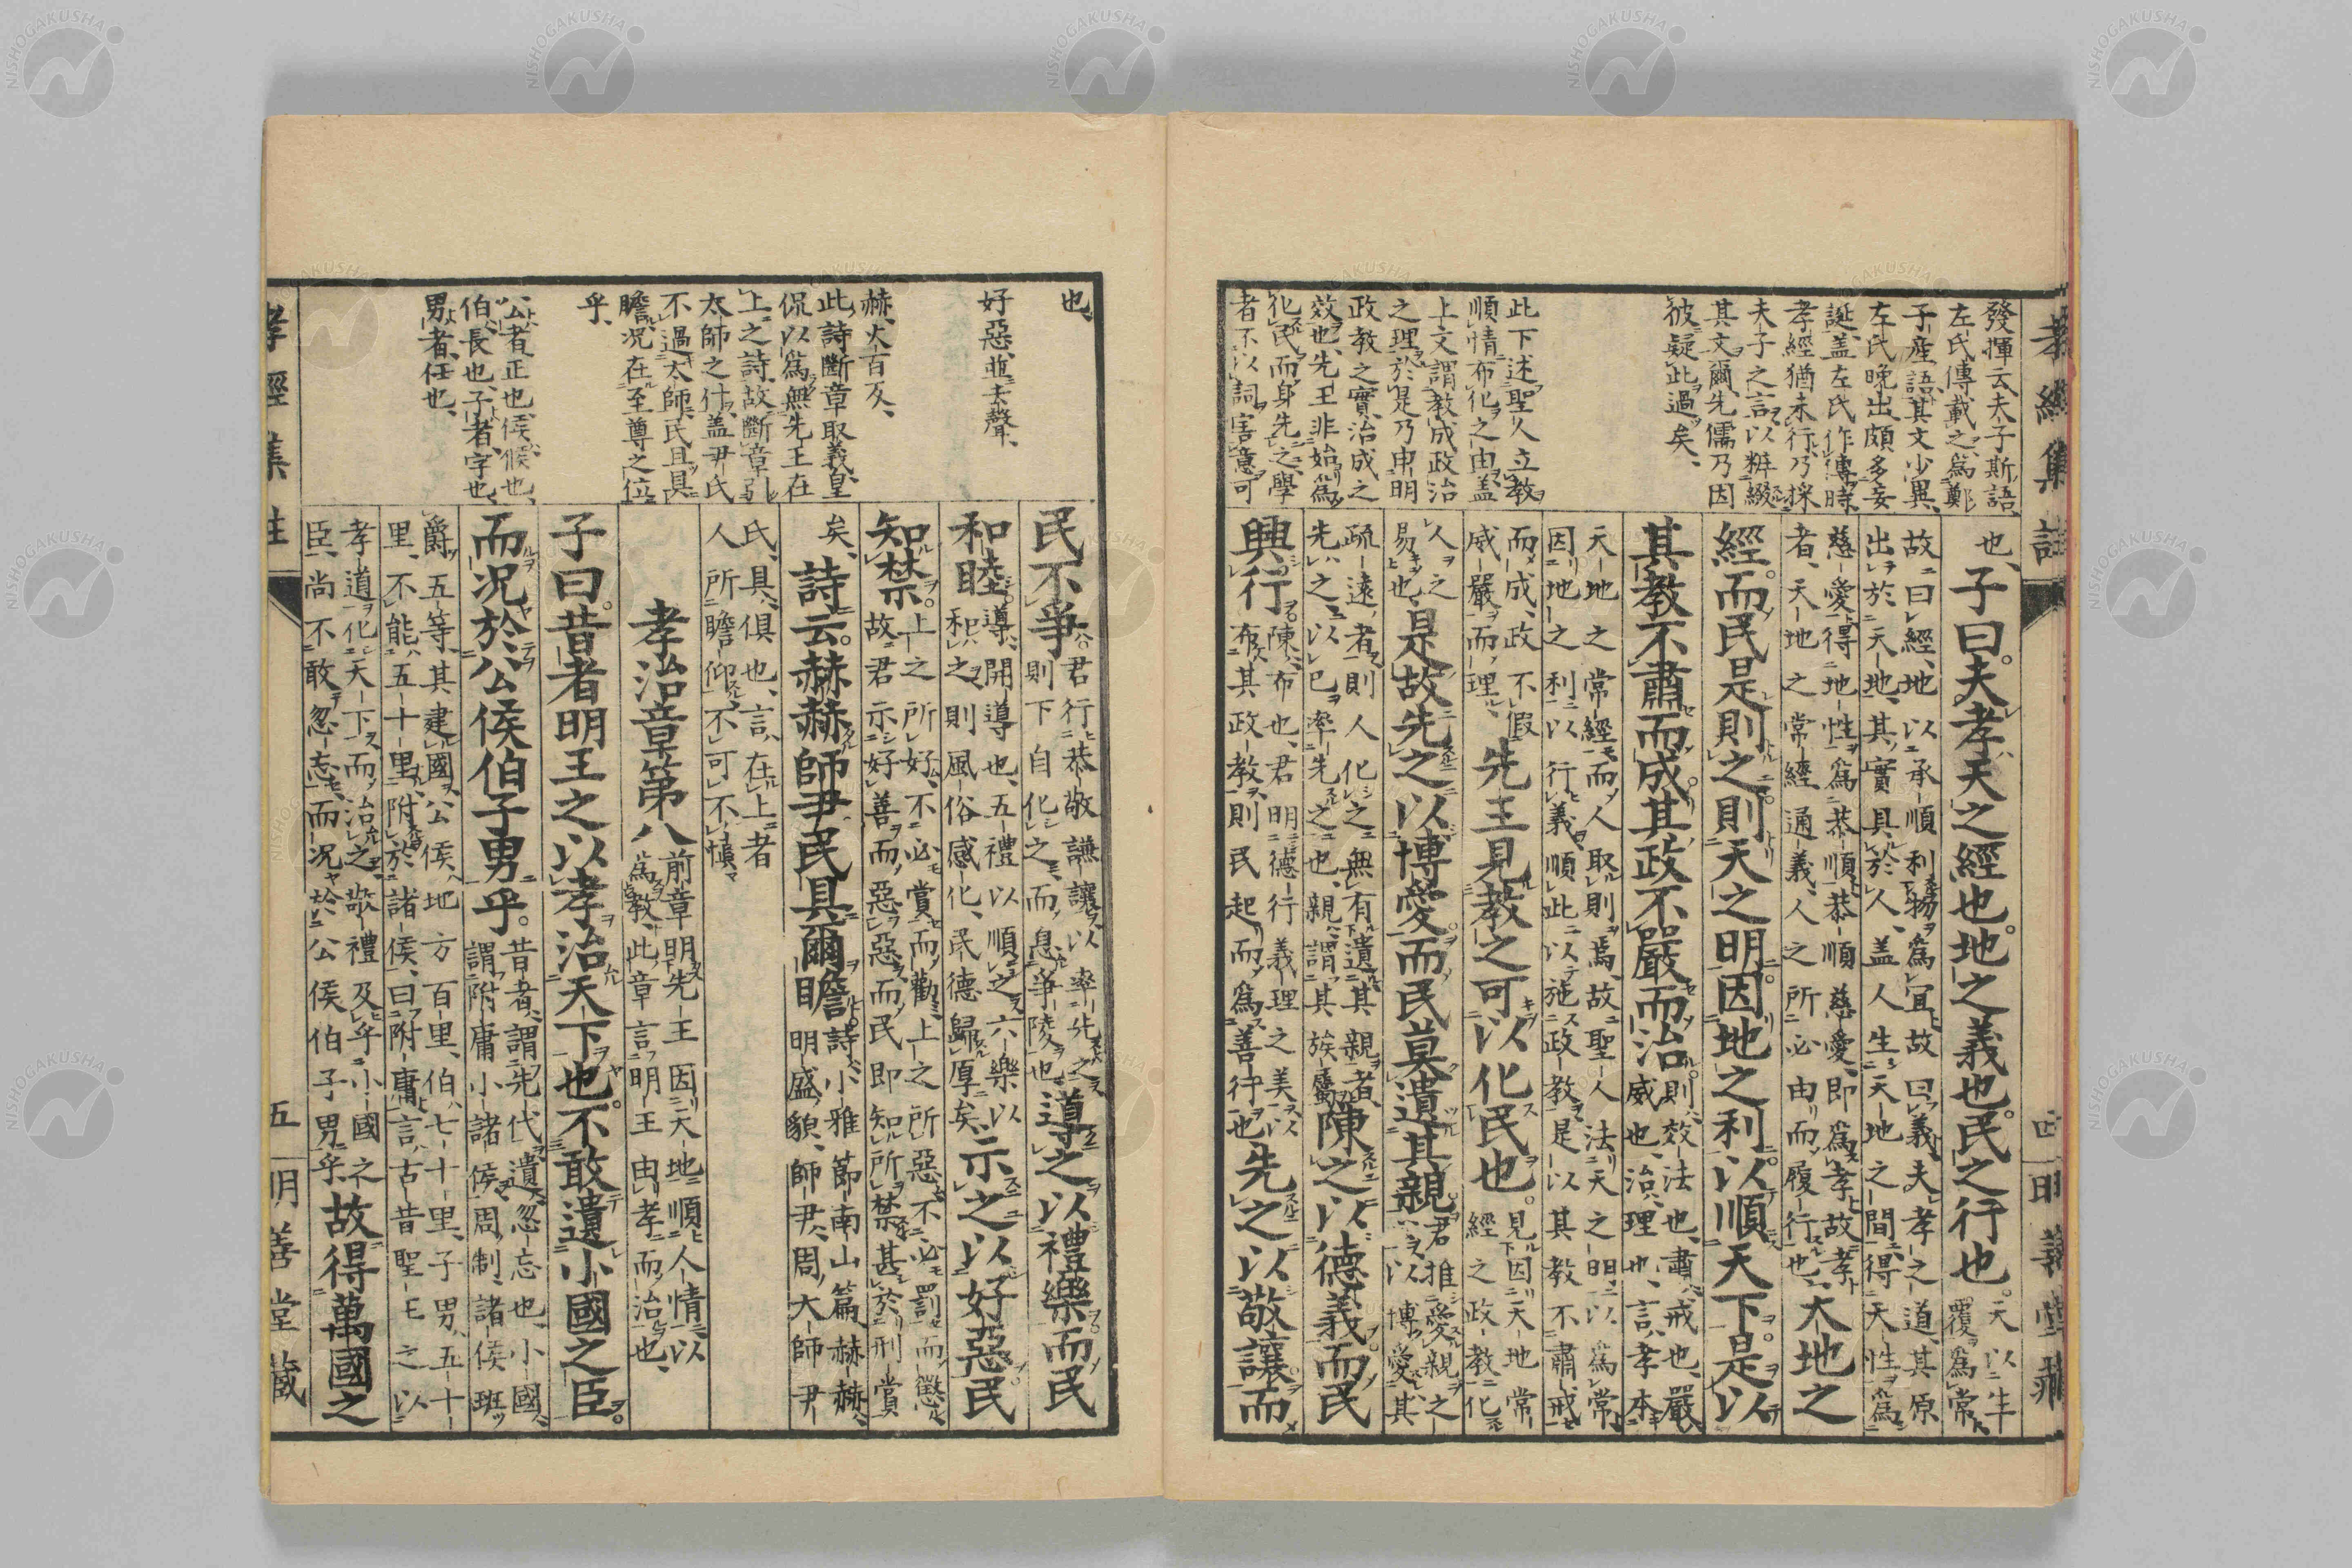 孝經集註 四 明善堂藏
發揮云夫子斯語、
左氏傳載之、爲鄭
子産語、其文少異、
左氏晩出、頗多妄
誕、蓋左氏作傳時、
孝經猶未行、乃採
夫子之言、以粧綴
其文爾、先儒乃因
彼疑此過矣、
此下述聖人立教
順情布化之由、蓋
上文謂教成政治
之理、於是乃申明
政教之實、治成之
效也、先王非始爲
化民而身先之、學
者不以詞害意可
也、
好惡、並去聲、
赫、火百反、
此詩斷章取義、皇
侃以爲無先王在
上之詩、故斷章引
太師之什、蓋尹氏
不過太師、民且具
瞻、况在至尊之位
乎、
公者、正也、侯、候也、
伯、長也、子者、字也、
男者、任也、
也、子曰。夫孝天之經也。地之義也。民之行也。天以生
覆爲常、
故曰經、地以承順利物爲宜、故曰義、夫孝之道、其原
出於天地、其實具於人、蓋人生天地之間、得天性爲
慈愛、得地性爲恭順、恭順慈愛、即爲孝、故孝
者、天地之常經通義、人之所必由而履行也、天地之
經。而民是則之。則天之明。因地之利。以順天下。是以
其教不肅而成。其政不嚴而治。則、效法也、肅、戒也、嚴、
威也、治、理也、言、孝本
天地之常經、而人取則焉、故聖人法天之明、以爲常、
因地之利、以行義、順此以施政教、是以其教不肅戒
而成、政不假
威嚴而理、先王見教之可以化民也。見因天地常
經之政教、化
人之
易也、是故先之以博愛。而民莫遺其親。君推愛親之
心、以博愛其
疏遠者、則人化之、無有遺其親者、
先之、以己率先之也、親、謂其族屬、陳之以德義。而民
興行。陳、布也、君明德行義理之美、以
布其政教、則民起而爲善行也、先之以敬讓。而
民不爭。君行恭敬謙讓、以率先之、
則下自化之、而息爭陵也、導之以禮樂。而民
和睦。導、開導也、五禮以順之、六樂以
和之、則風俗感化、民德歸厚矣、示之以好惡。民
知禁。上之所好、不必賞而勸、上之所惡、不必罰而懲、
故君示好善而惡惡、而民即知所禁、甚於刑賞
矣、詩云。赫赫師尹。民具爾瞻。詩、小雅節南山篇、赫赫、
明盛貌、師尹、周大師尹
氏、具、俱也、言、在上者
人所瞻仰、不可不愼、
孝治章第八 前章明先王因天地順人情以
爲教、此章言明王由孝而治也、
子曰。昔者明王之以孝治天下也。不敢遺小國之臣。
而况於公侯伯子男乎。昔者、謂先代、遺、忽忘也、小國、
謂附庸小諸侯、周制、諸侯班
爵五等、其建國、公侯、地方百里、伯、七十里、子男、五十
里、不能五十里、附於諸侯、曰附庸、言、古昔聖王之以
孝道化天下而治之、敬禮及乎小國之
臣、尚不敢忽忘、而况於公侯伯子男乎、故得萬國之
孝經集註 五 明善堂藏